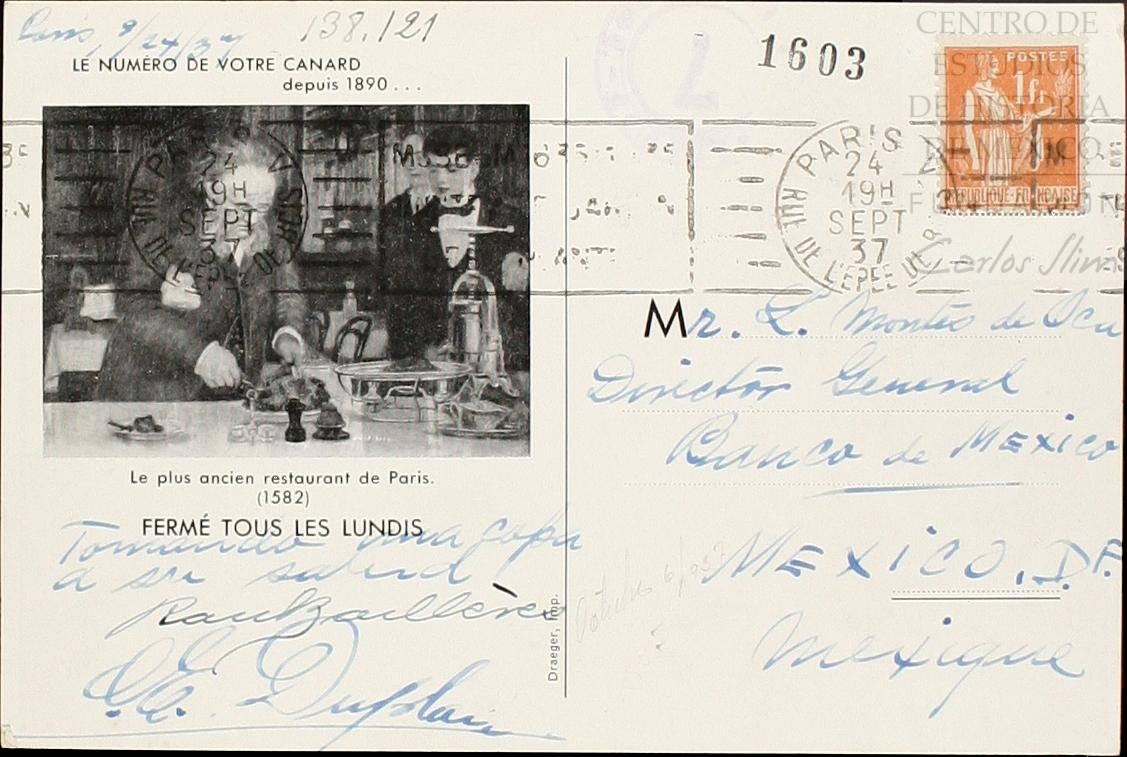 Paris, 9/24/37
138.121
LE NUMÉRO DE VOTRE CANARD
depuis 1890 ...
1603
CENTRO DE
ESTUDIOS
DE HISTORIA
DE MEXICO
Carlos Slim
POSTES
1fr
REPUBLIQUE FRANÇAISE
PARIS V
24
19H
SEPT
37
RUE DE L'EPEE DE
PARIS V
24
19H
SEPT
37
RUE DE L'EPEE DE
Le plus ancien restaurant de Paris.
(1582)
FERMÉ TOUS LES LUNDIS
Tomando una copa
a su salud
Raul Baillères
Draeger, Imp.
Mr. L. Montes de Oca
Director General
Banco de MEXICO
MEXICO, D.F.
Mexique